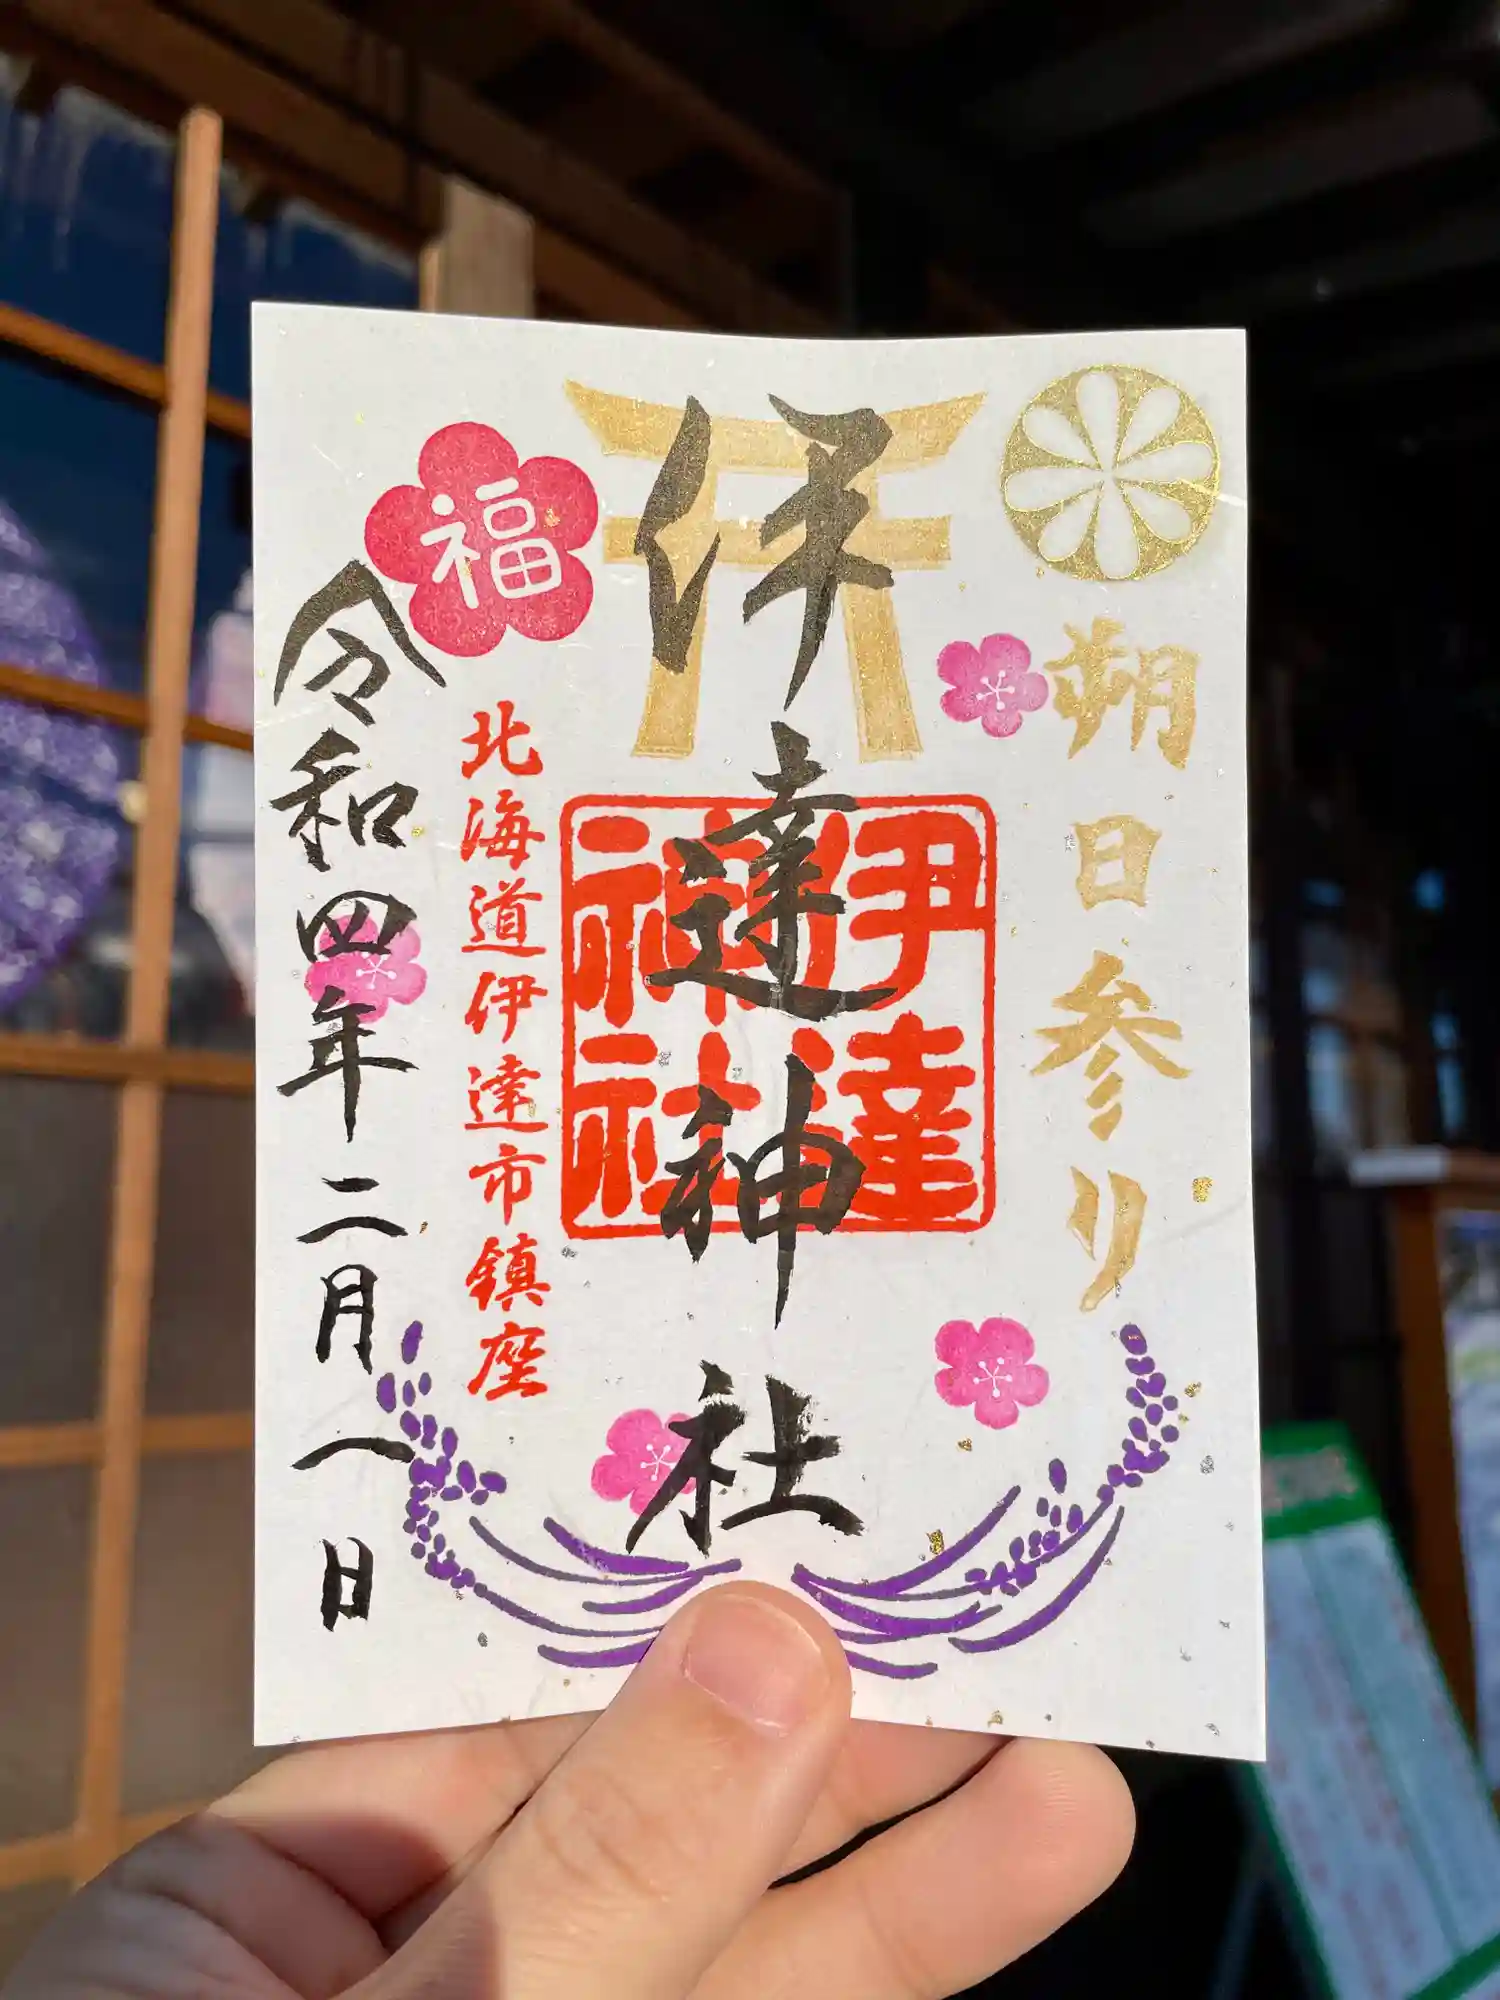 朔日参り
伊達神社
伊達
神社
福
北海道伊達市鎮座
令和四年二月一日